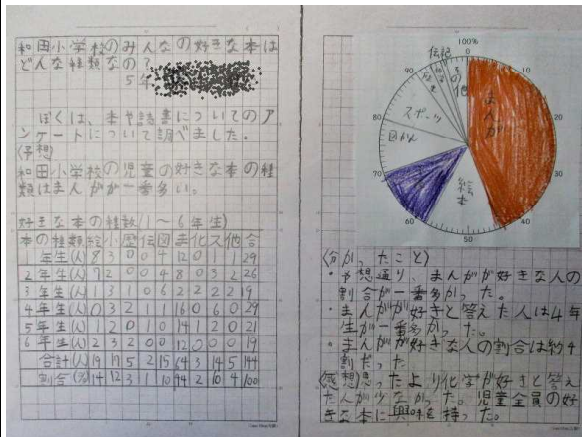 和田小学校のみんなの好きな本は
どんな種類なの?
5年
ぼくは、本や読書についてのア
ンケートについて調べました.
(予想)
和田小学校の児童の好きな本の種
類はまんがが一番多い。
好きな本の種数(1~6年生)
本の種類絵小歴伝図ま化ス他合
1年生(人)8 3 0 0 4 12 0 1 1 29
2年生(人)7 2 0 0 4 8 0 3 2 26
3年生(人)1 3 1 0 6 2 2 2 2 19
4年生(人)0 3 2 1 16 0 6 0 29
5年生(人)1 2 0 1 0 14 1 2 0 21
6年生(人)2 3 2 0 0 12 0 0 0 19
合計(人)19 17 5 2 15 64 3 14 5 144
割合(%)14 12 3 1 10 44 2 10 4 100
100%
90
80
70
60
50
40
30
20
10
0
まんが
絵本
図かん
スポーツ
伝記
その他
(分かったこと)
・予想通り、まんがが好きな人の
割合が一番多かった。
・まんがが好きと答えた人は4年
生が一番多かった。
・まんがが好きな人の割合は約4
割だった
(感想)思ったより化学が好きと答え
た人が少なかった。児童全員の好
きな本に興味を持った。